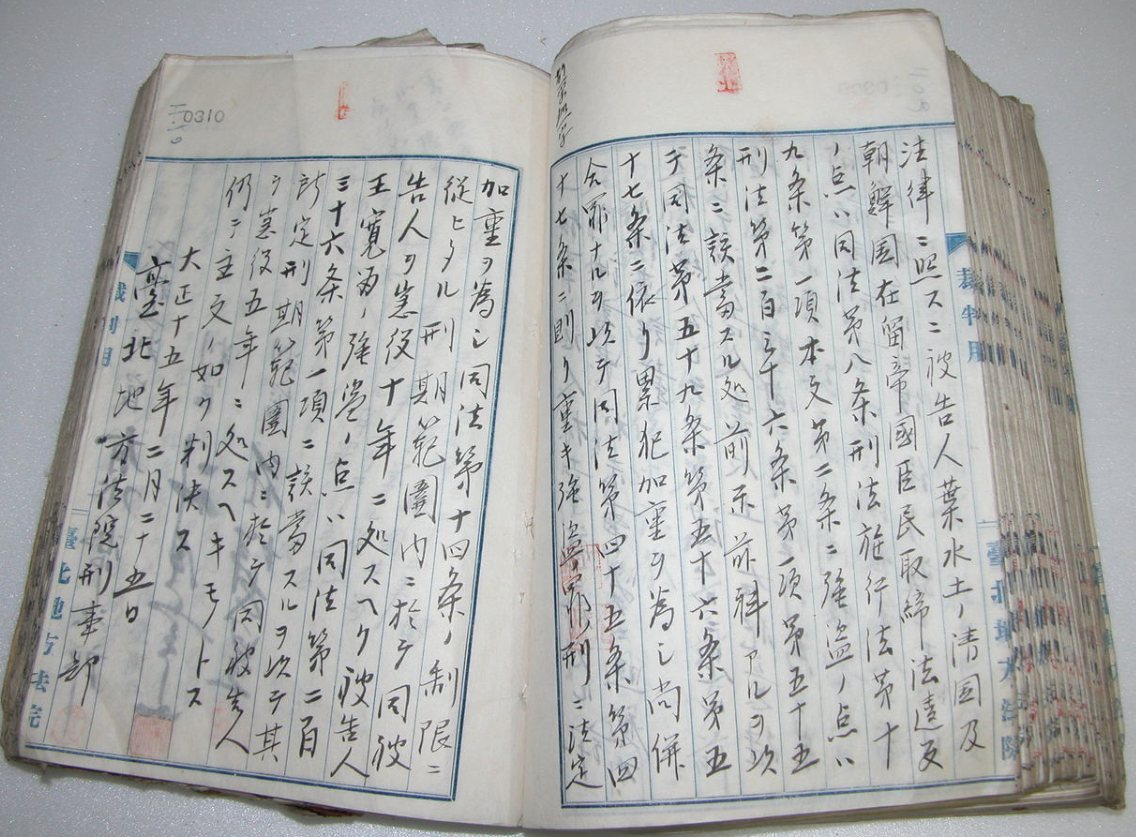 法律ニ照スニ被告人葉水土ノ清国及
朝鮮国在留帝國臣民取締法違反
ノ点ハ同法第八条刑法施行法第十
九条第一項本文第二条ニ強盗ノ点ハ
刑法第二百三十六条第一項第五十五
条ニ該当スル処前示前科アルヲ以
テ同法第五十九条第五十六条第五
十七条ニ依リ累犯加重ヲ為シ尚併
合罪ナルヲ以テ同法第四十五条第四
十七条ニ則リ重キ強盗罪ノ刑ニ法定
裁判用
臺北地方法院
加重ヲ為シ同法第十四条ノ制限ニ
從ヒタル刑期範圍内ニ於テ同被
告人ヲ懲役十年ニ処スヘク被告人
王寛為ノ強盗ノ点ハ同法第二百
三十六条第一項ニ該当スルヲ以テ其
所定刑期範圍内ニ於テ同被告人
ヲ懲役五年ニ処スヘキモノトス
仍テ主文ノ如ク判決ス
大正十五年二月二十五日
臺北地方法院刑事部
裁判用
臺北地方法院
0310